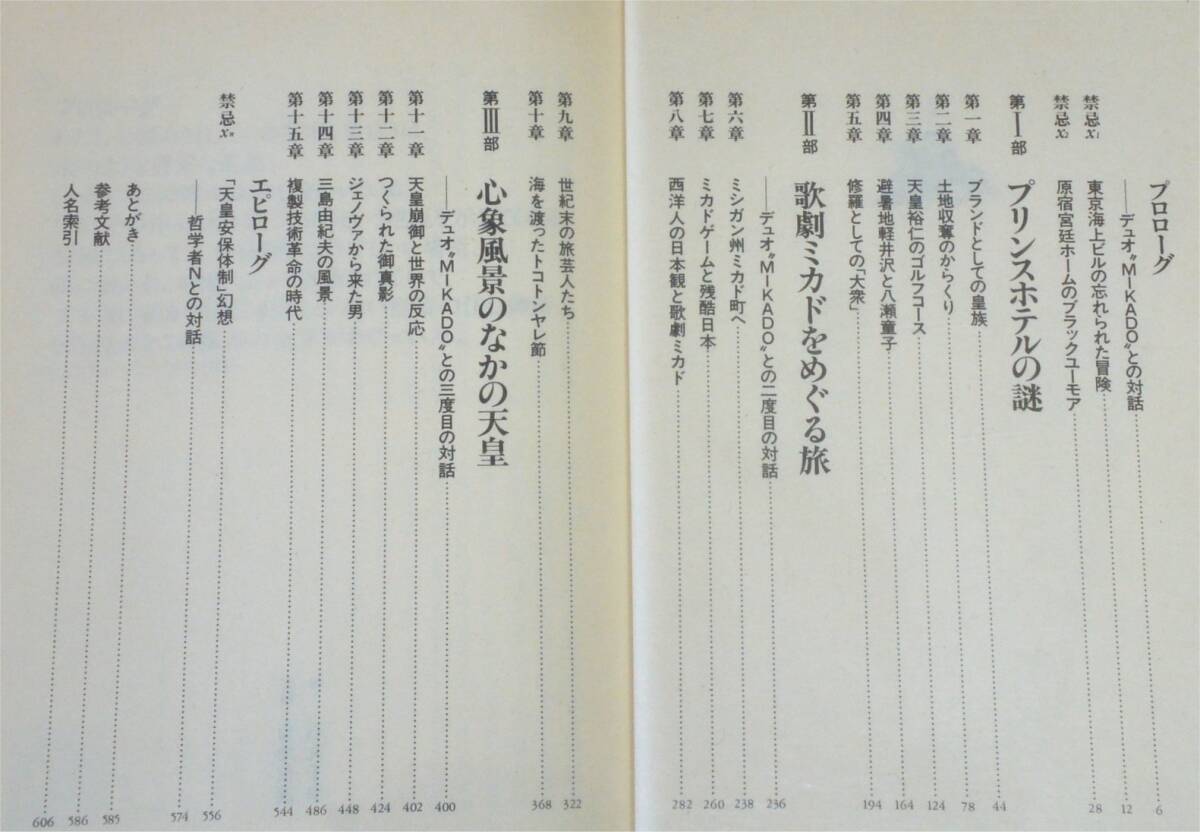 プロローグ
――デュオ〝MIKADO〟との対話 6
禁忌x₁ 東京海上ビルの忘れられた冒険 12
禁忌x₂ 原宿宮廷ホームのブラックユーモア 28
第Ⅰ部 プリンスホテルの謎
第一章 ブランドとしての皇族 44
第二章 土地収奪のからくり 78
第三章 天皇裕仁のゴルフコース 124
第四章 避暑地軽井沢と八瀬童子 164
第五章 修羅としての「大衆」 194
第Ⅱ部 歌劇ミカドをめぐる旅
――デュオ〝MIKADO〟との二度目の対話 236
第六章 ミシガン州ミカド町へ 238
第七章 ミカドゲームと残酷日本 260
第八章 西洋人の日本観と歌劇ミカド 282
第九章 世紀末の旅芸人たち 322
第十章 海を渡ったトコトンヤレ節 368
第Ⅲ部 心象風景のなかの天皇
――デュオ〝MIKADO〟との三度目の対話 400
第十一章 天皇崩御と世界の反応 402
第十二章 つくられた御真影 424
第十三章 ジェノヴァから来た男 448
第十四章 三島由紀夫の風景 486
第十五章 複製技術革命の時代 544
エピローグ
禁忌xₙ 「天皇安保体制」幻想 556
――哲学者Nとの対話 574
あとがき 585
参考文献 586
人名索引 606